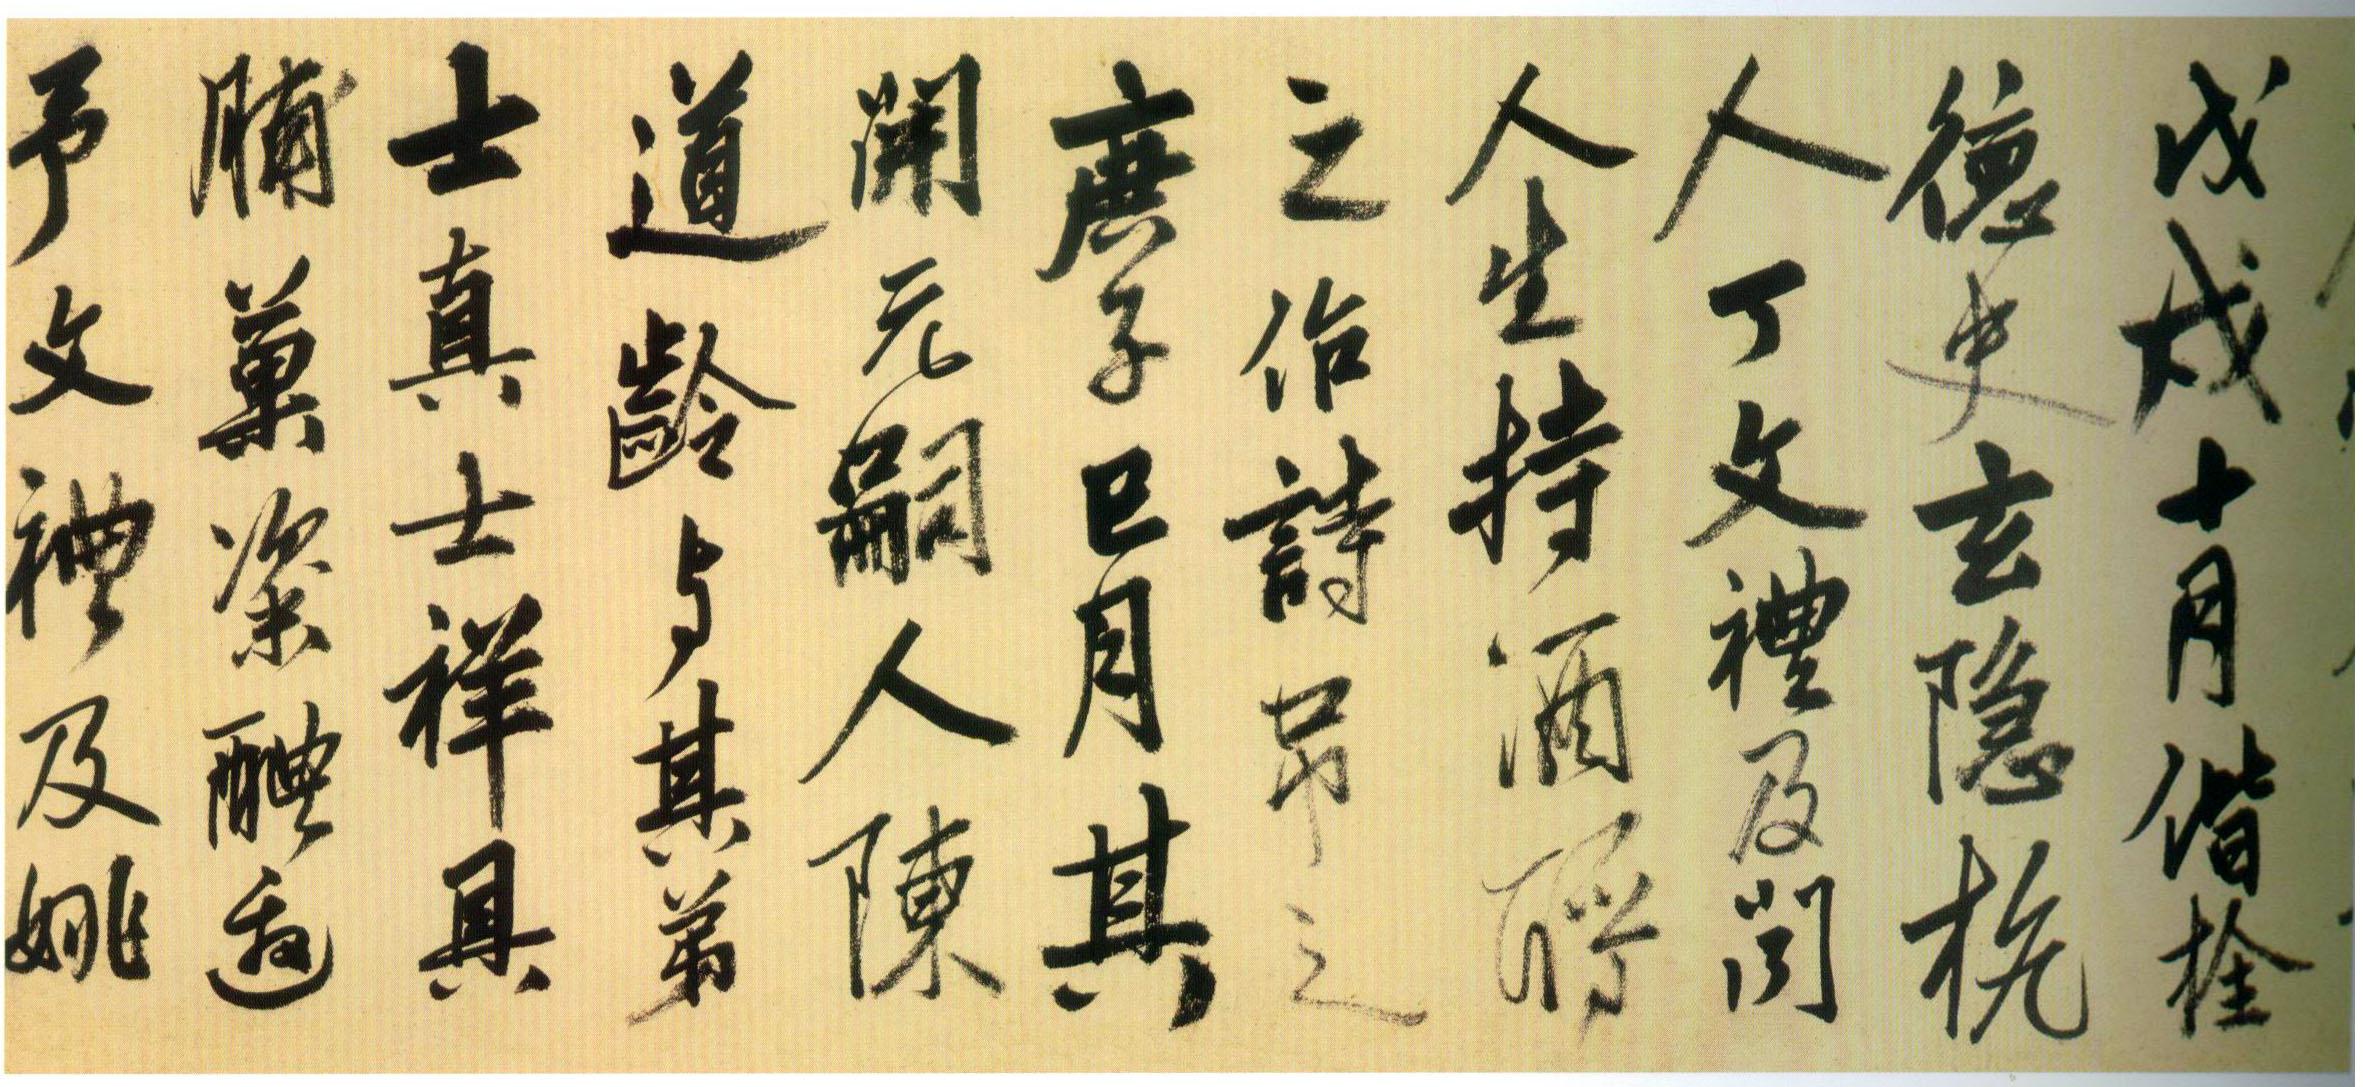 戊戌十月偕栓
德史玄隐桄
人丁文禮及閔
人生持酒酹
之作詩吊之
庚子巳月其
開元嗣人陳
道齡与其弟
士真士祥具
脯菓粢醴邀
予文禮及姚